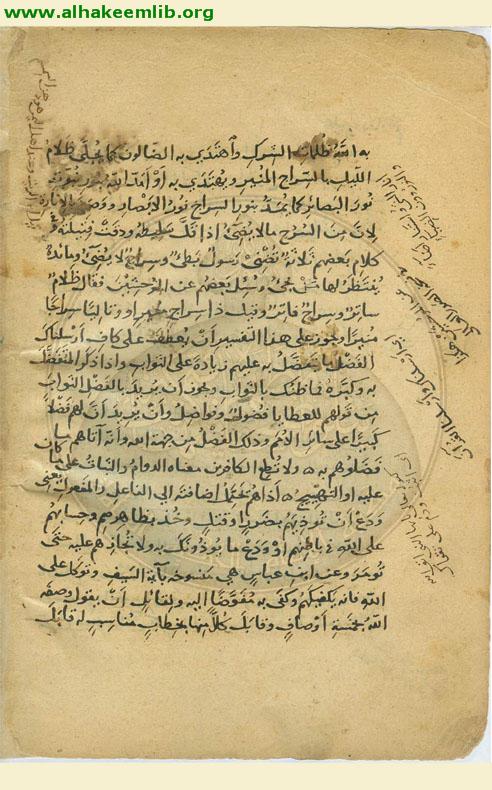 www.alhakeemlib.org
به الله ظلمات الشرك واهتدى به الضالون كما يجلى ظلام
الليل بالسراج المنير ويهتدى به أو أمد الله بنور نبوته
نور البصائر كما يمد بنور السراج نور الأبصار ووصفه بالإنارة
لأن من السرج ما لا يضيء إذا قل سليطه ودقت فتيلته وفي
كلام بعضهم ثلاثة تضني رسول بطيء وسراج لا يضيء ومائدة
ينتظر لها من يجيء وسئل بعضهم عن الموحشين فقال ظلام
ساتر وسراج فاتر وقيل ذا سراج منير أو وتاليا سراجا
منيرا ويجوز على هذا التفسير أن يعطف على كاف أرسلناك
الفضل ما يتفضل به عليهم زيادة على الثواب وإذا ذكر المتفضل
به وكبره فما ظنك بالثواب ويجوز أن يريد بالفضل الثواب
من قولهم للعطايا فضول وفواضل وأن يريد أن لهم فضلا
كبيرا على سائر الأمم وذلك الفضل من جهة الله وأنه آتاهم ما
فضلوهم به ولا تطع الكافرين معناه الدوام والثبات على ما كان
عليه أو التهييج أذاهم يحتمل إضافته إلى الفاعل والمفعول يعني
ودع أن تؤذيهم بضرر أو قتل وخذ بظاهرهم وحسابهم
على الله في باطنهم أو ودع ما يؤذونك به ولا تجازهم عليه حتى
تؤمر وعن ابن عباس هي منسوخة بآية السيف وتوكل على
الله فإنه يكفيكهم وكفى به مفوضا إليه ولقائل أن يقول وصفه
الله بخمسة أوصاف وقابل كلا منها بخطاب مناسب له قابل